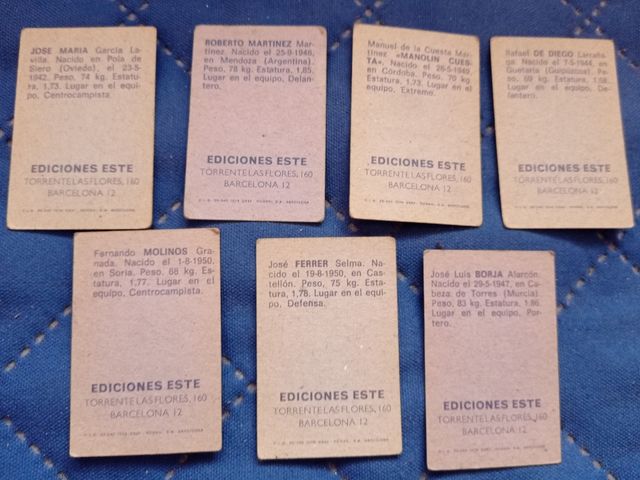 JOSE MARIA García La-
villa. Nacido en Pola de
Siero (Oviedo), el 23-5-
1942. Peso, 74 kg. Estatu-
ra, 1,73. Lugar en el equi-
po, Centrocampista.
EDICIONES ESTE
TORRENTE LAS FLORES, 160
BARCELONA 12
ROBERTO MARTINEZ Mar-
tínez. Nacido el 25-9-1946,
en Mendoza (Argentina).
Peso, 78 kg. Estatura, 1,85.
Lugar en el equipo, Delan-
tero.
EDICIONES ESTE
TORRENTE LAS FLORES, 160
BARCELONA 12
Manuel de la Cuesta Mar-
tínez «MANOLIN CUES-
TA». Nacido el 26-5-1949,
en Córdoba. Peso, 70 kg.
Estatura, 1,73. Lugar en el
equipo, Extremo.
EDICIONES ESTE
TORRENTE LAS FLORES, 160
BARCELONA 12
Rafael DE DIEGO Larraña-
ga. Nacido el 1-5-1944, en
Guetaria (Guipúzcoa). Pe-
so, 69 kg. Estatura, 1,68.
Lugar en el equipo, De-
lantero.
EDICIONES ESTE
TORRENTE LAS FLORES, 160
BARCELONA 12
Fernando MOLINOS Gra-
nada. Nacido el 1-8-1950,
en Soria. Peso, 68 kg. Es-
tatura, 1,77. Lugar en el
equipo, Centrocampista.
EDICIONES ESTE
TORRENTE LAS FLORES, 160
BARCELONA 12
José FERRER Selma. Na-
cido el 19-8-1950, en Cas-
tellón. Peso, 75 kg. Esta-
tura, 1,78. Lugar en el equi-
po, Defensa.
EDICIONES ESTE
TORRENTE LAS FLORES, 160
BARCELONA 12
José Luis BORJA Alarcón.
Nacido el 29-5-1947, en Ca-
beza de Torres (Murcia).
Peso, 83 kg. Estatura, 1,86.
Lugar en el equipo, Por-
tero.
EDICIONES ESTE
TORRENTE LAS FLORES, 160
BARCELONA 12